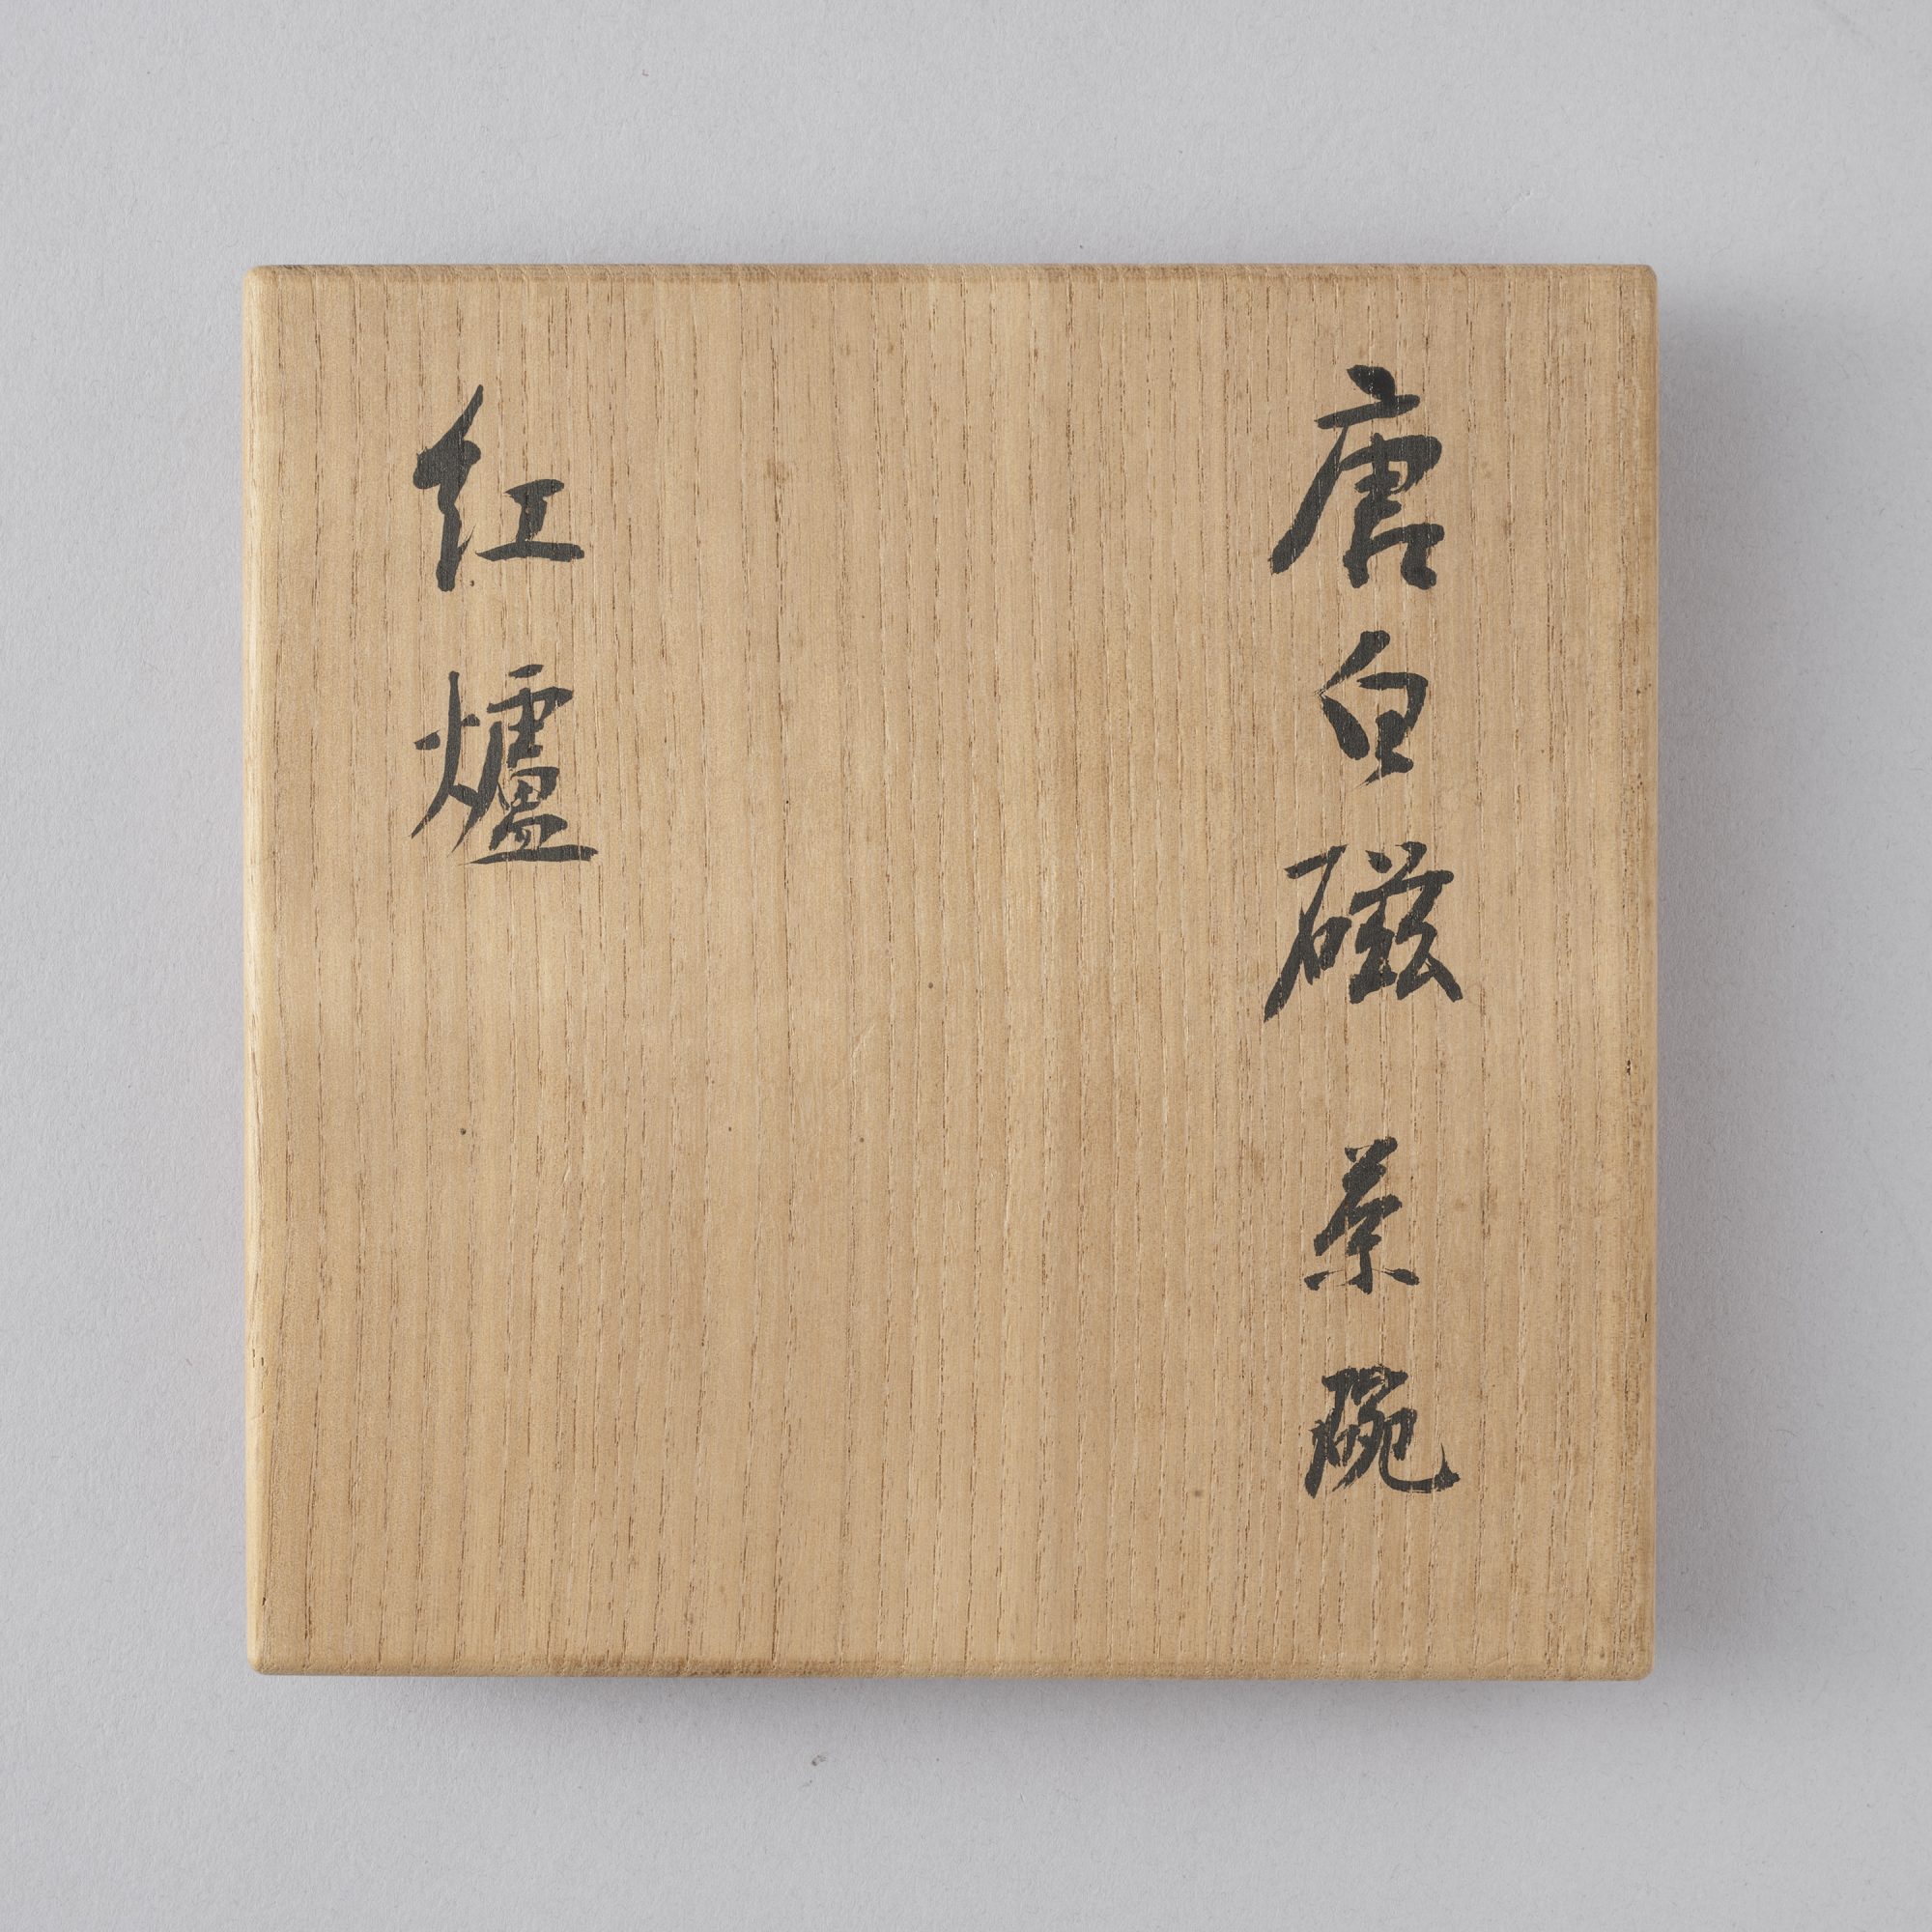 唐白磁 茶碗
紅爐